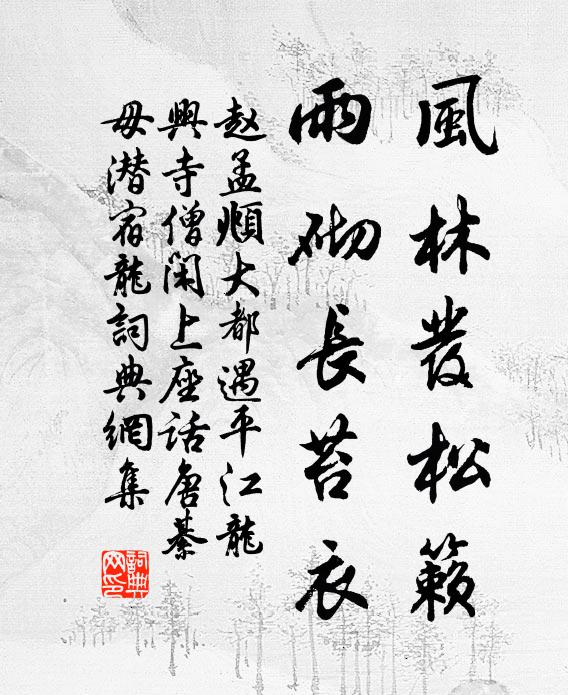 風林發松籟
雨砌長苔衣
赵孟頫大都遇平江龍
興寺僧閑上座話唐綦
毋潛宿龍詞典網集
詞典
网印